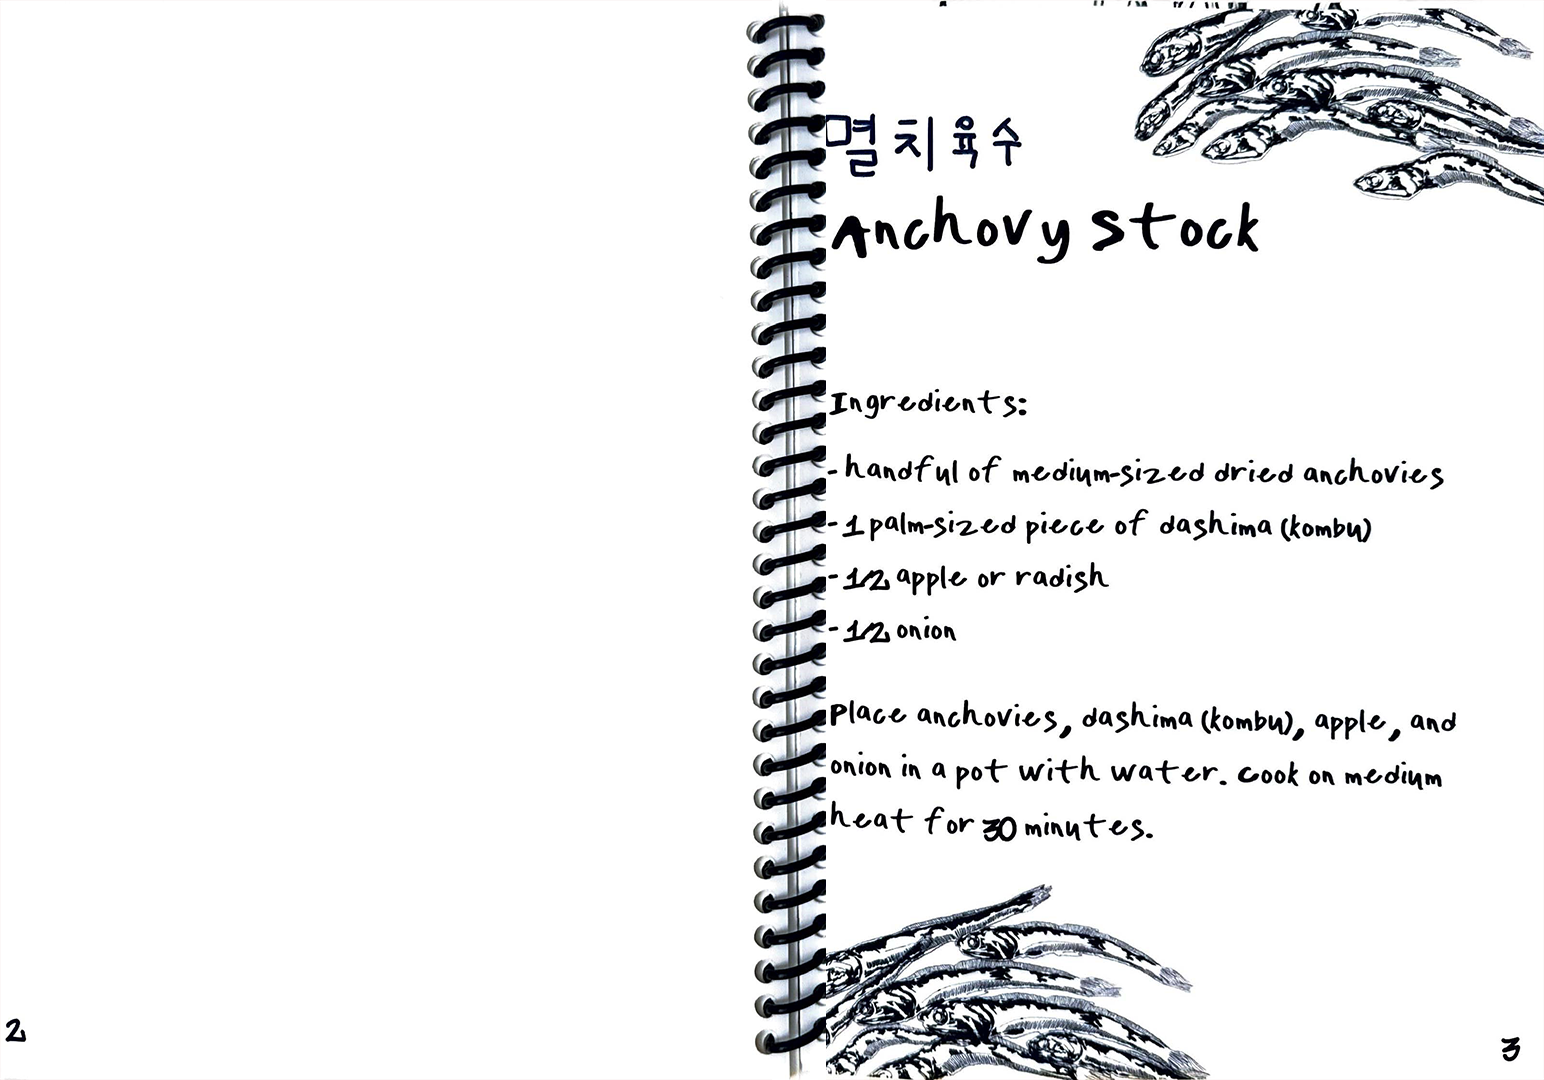 멸치육수
Anchovy Stock
Ingredients:
- handful of medium-sized dried anchovies
- 1 palm-sized piece of dashima (kombu)
- 1/2 apple or radish
- 1/2 onion
Place anchovies, dashima (kombu), apple, and
onion in a pot with water. Cook on medium
heat for 30 minutes.
2
3